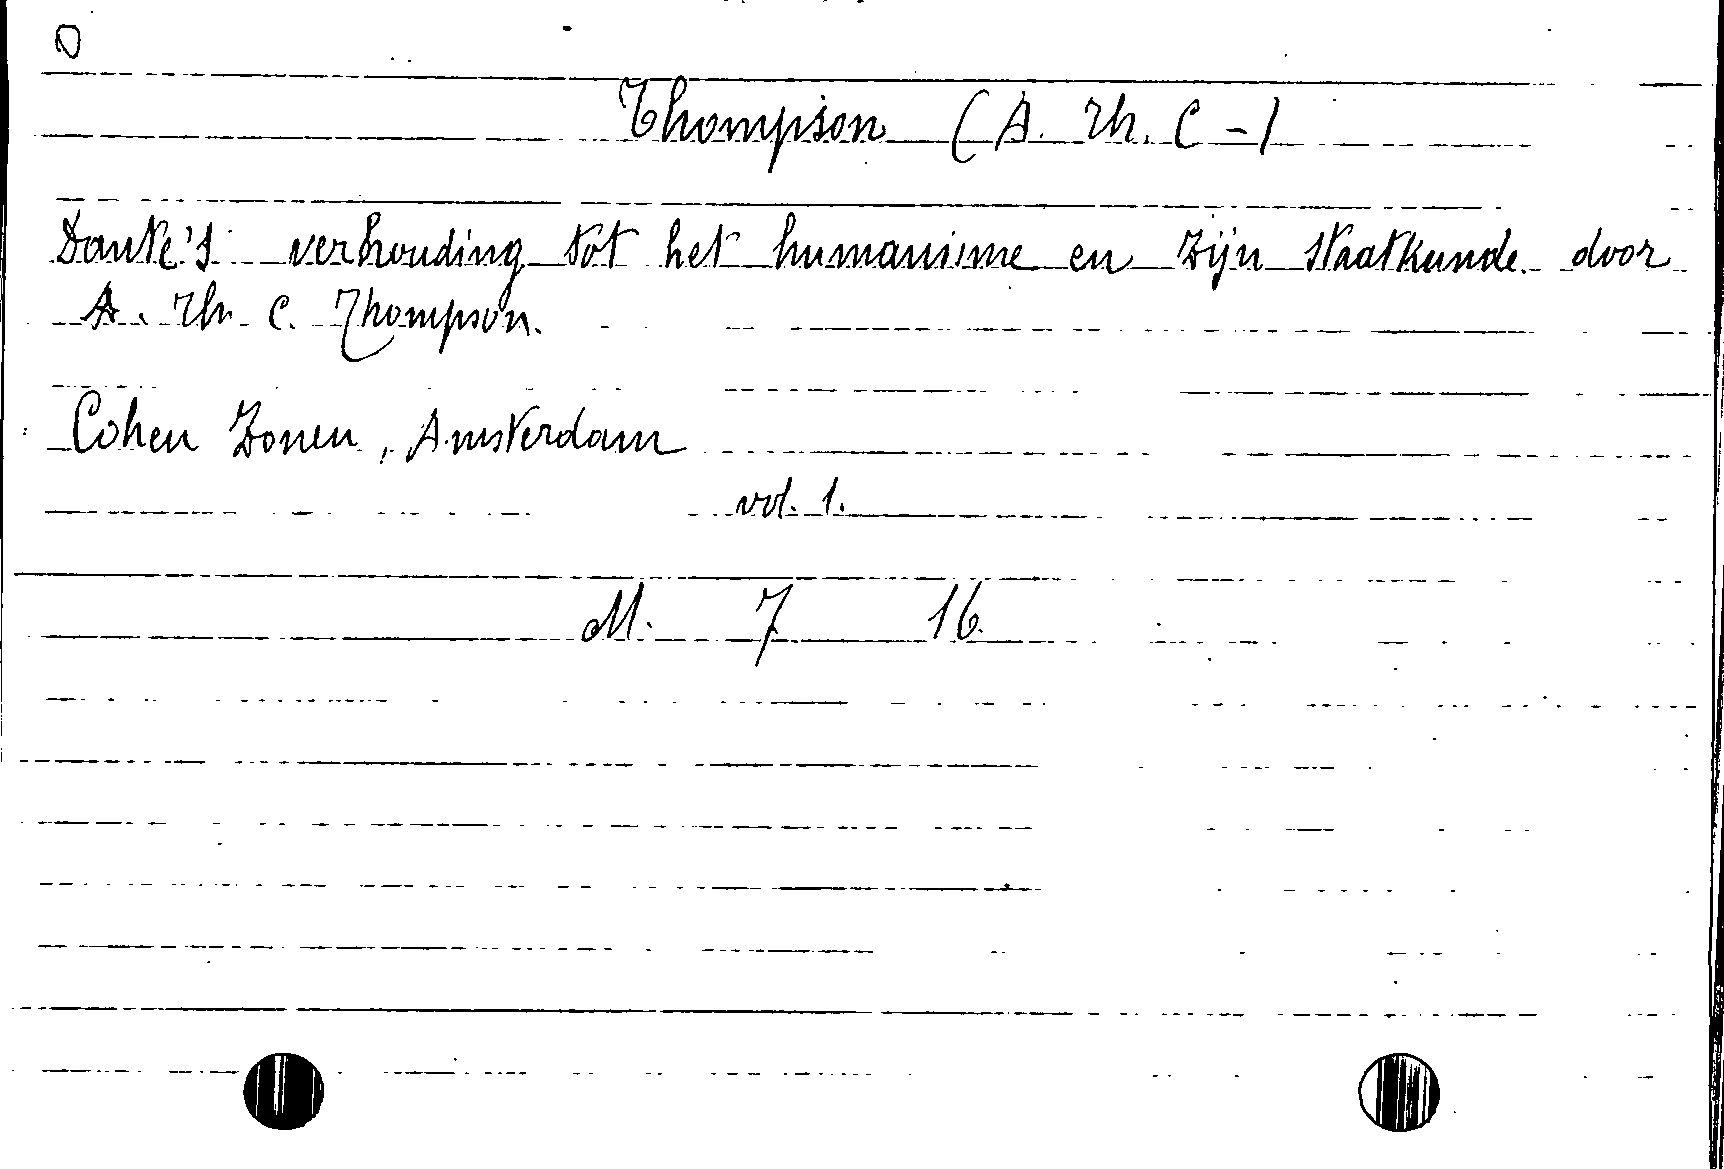 D
Thompson (A. Th. C-)
Dante's verhouding tot het humanisme en zijn staatkunde door
A. Th. C. Thompson.
Cohen Zonen, Amsterdam
vol. 1.
M. 7 16.